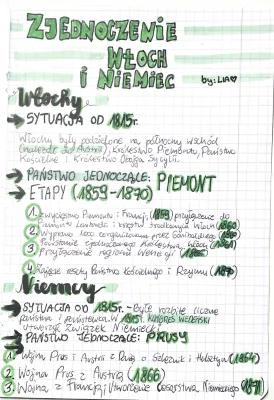 ZJEDNOCZENIE
WŁOCH
I NIEMIEC
by: LIA
Włochy
SYTUACJA OD 1815r.
Włochy były podzielone na północny wschód
(należał do Austrii), Królestwo Piemontu, Państwo
Kościelne i Królestwo Obojga Sycylii.
PAŃSTWO JEDNOCZĄCE: PIEMONT
ETAPY (1859-1870)
1 Zwycięstwo Piemontu i Francji (1859) przyłączenie do
Piemontu Lombardii i księstw środkowych Włoch (1860)
2 Wyprawa
3 Powstanie zjednoczonego Królestwa Włoch (1861)
Przyłączenie regionu Wenecji (1866)
4 Zajęcie reszty Państwa Kościelnego i Rzymu (1870)
Niemcy
SYTUACJA OD 1815r. - Były rozbite liczne
państwa i państewka. W 1815r. KONGRES WIEDEŃSKI
utworzył Związek Niemiecki
PAŃSTWO JEDNOCZĄCE: PRUSY
1 Wojna Prus i Austrii z Danią o Szlezwik i Holsztyn (1864)
2 Wojna Prus z Austrią (1866)
3 Wojna z Francją i Utworzenie Cesarstwa Niemieckiego (1871)